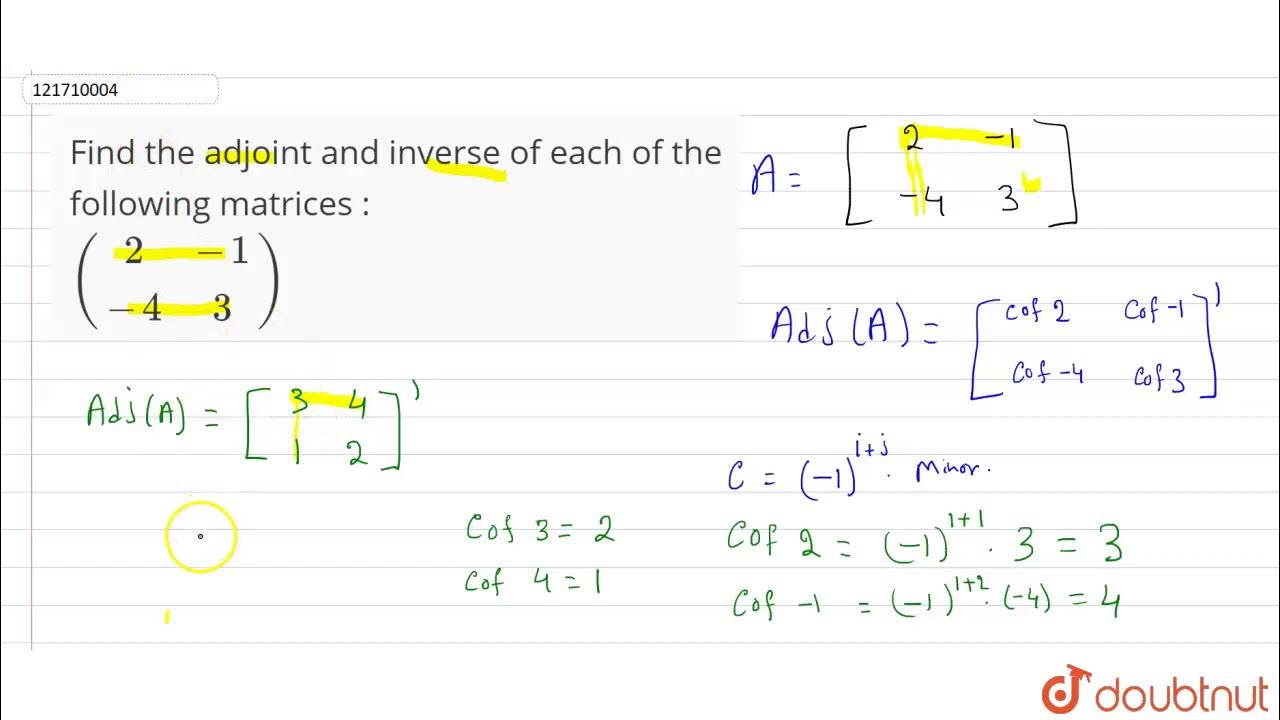 121710004
Find the adjoint and inverse of each of the
following matrices :
( 2 −1
−4 3 )
A = [ 2 -1
-4 3 ]
Adj(A) = [ Cof 2 Cof -1
Cof -4 Cof 3 ]'
Adj(A) = [ 3 4
1 2 ]'
C = (-1)^{i+j} . Minor.
Cof 3 = 2
Cof 4 = 1
Cof 2 = (-1)^{1+1} . 3 = 3
Cof -1 = (-1)^{1+2} . (-4) = 4
doubtnut